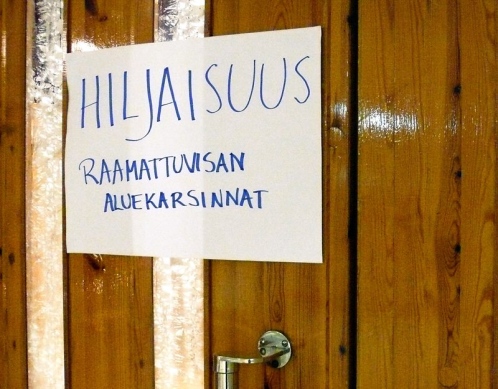 HILJAISUUS
RAAMATTUVISAN
ALUEKARSINNAT